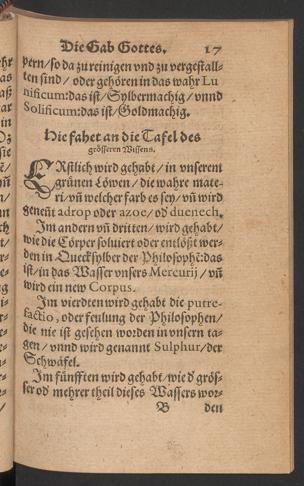 Die Gab Gottes. 17
pern/so da zu reinigen vnd zu vergestall-
ten sind/ oder gehören in das wahr Lu
nificum:das ist/Sylbermachig/vnnd
Solificum:das ist/Goldmachig.
Hie fahet an die Tafel des
grösseren Wissens.
ERstlich wird gehabt/in vnserem
grünen Löwen/die wahre mate-
ri/vñ welcher farb es sey/vñ wird
geneñt adrop oder azoe/ od duenech.
Im andern vñ dritten/ wird gehabt/
wie die Cörper soluiert oder entlößt wer-
den in Quecksylber der Philosophē:das
ist/in das Wasser vnsers Mercurij/ vñ
wird ein new Corpus.
Im vierdten wird gehabt die putre-
factio, oder feulung der Philosophen/
die nie ist gesehen worden in vnsern ta-
gen/ vnnd wird genannt Sulphur/der
Schwäfel.
Im fünfften wird gehabt/wie d̕ grös-
ser od̕ mehrer theil dieses Wassers wor-
B den